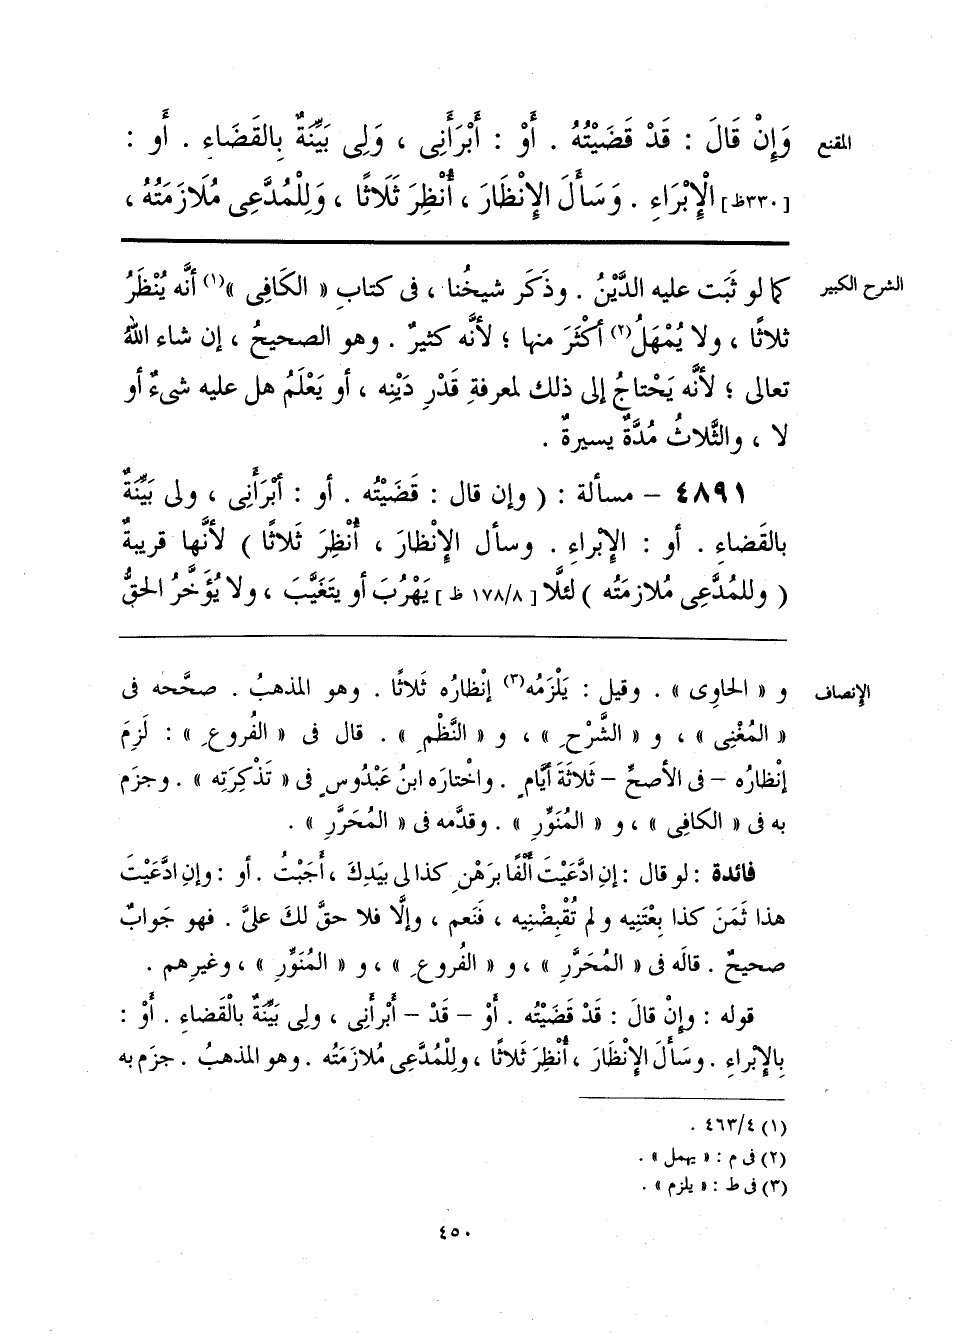 المقنع وَإِنْ قَالَ : قَدْ قَضَيْتُهُ . أَوْ : أَبْرَأَنِى ، وَلِى بَيِّنَةٌ بِالقَضَاءِ . أَو :
[٣٣٠ظ] الْإِبْرَاءِ . وَسَأَلَ الإِنْظَارَ ، أُنْظِرَ ثَلَاثًا ، وَلِلْمُدَّعِى مُلَازَمَتُهُ ،
الشرح الكبير كما لو ثَبَت عليه الدَّيْنُ . وذَكَر شيخُنا ، فى كتابِ « الكَافِى »(١) أنَّه يُنْظَرُ
ثلاثًا ، ولا يُمْهَلُ(٢) أكْثَرَ منها ؛ لأنَّه كثيرٌ . وهو الصحيحُ ، إن شاء اللهُ
تعالى ؛ لأنَّه يَحْتاجُ إلى ذلك لمعرفةِ قَدْرِ دَيْنِه ، أو يَعْلَمُ هل عليه شىءٌ أو
لا ، والثَّلاثُ مُدَّةٌ يسيرةٌ .
٤٨٩١ – مسألة : ( وإن قال : قَضَيْتُه . أو : أبْرَأَنِى ، ولى بَيِّنَةٌ
بالقَضاءِ . أو : الإِبْراءِ . وسأل الإِنْظارَ ، أُنْظِرَ ثَلاثًا ) لأنَّها قريبةٌ
( وللمُدَّعِى مُلازمَتُه ) لئلَّا [ ١٧٨/٨ ظ ] يَهْرُبَ أو يتَغَيَّبَ ، ولا يُؤَخَّرُ الحقُّ
الإنصاف و « الحاوِى » . وقيل : يَلْزَمُه(٣) إنْظارُه ثَلاثًا . وهو المذهبُ . صحَّحه فى
« المُغْنِى » ، و « الشَّرْحِ » ، و « النَّظْمِ » . قال فى « الفُروعِ » : لَزِمَ
إنْظارُه – فى الأصحِّ – ثَلاثَةَ أيَّامٍ . واخْتارَه ابنُ عَبْدُوسٍ فى « تَذْكِرَتِه » . وجزَم
به فى « الكافِى » ، و « المُنَوِّرِ » . وقدَّمه فى « المُحَرَّرِ » .
فائدة : لو قال : إنِ ادَّعَيْتَ ألْفًا برَهْنِ كذا لى بيَدِكَ ، أجَبْتُ . أو : وإنِ ادَّعَيْتَ
هذا ثَمَنَ كذا بِعْتَنِيه ولم تُقْبِضْنِيه ، فنَعم ، وإلَّا فلا حقَّ لكَ علىَّ . فهو جَوابٌ
صحيحٌ . قالَه فى « المُحَرَّرِ » ، و « الفُروعِ » ، و « المُنَوِّرِ » ، وغيرِهم .
قوله : وإنْ قالَ : قَدْ قَضَيْتُه . أوْ – قَدْ – أَبْرَأَنِى ، ولِى بَيِّنَةٌ بالْقَضاءِ . أَوْ :
بِالإِبْراءِ . وسَأَلَ الإِنْظَارَ ، أُنْظِرَ ثَلَاثًا ، ولِلْمُدَّعِى مُلازَمَتُه . وهو المذهبُ . جزَم به
(١) ٤٦٣/٤ .
(٢) فى م : « يهمل » .
(٣) فى ط : « يلزم » .
٤٥٠